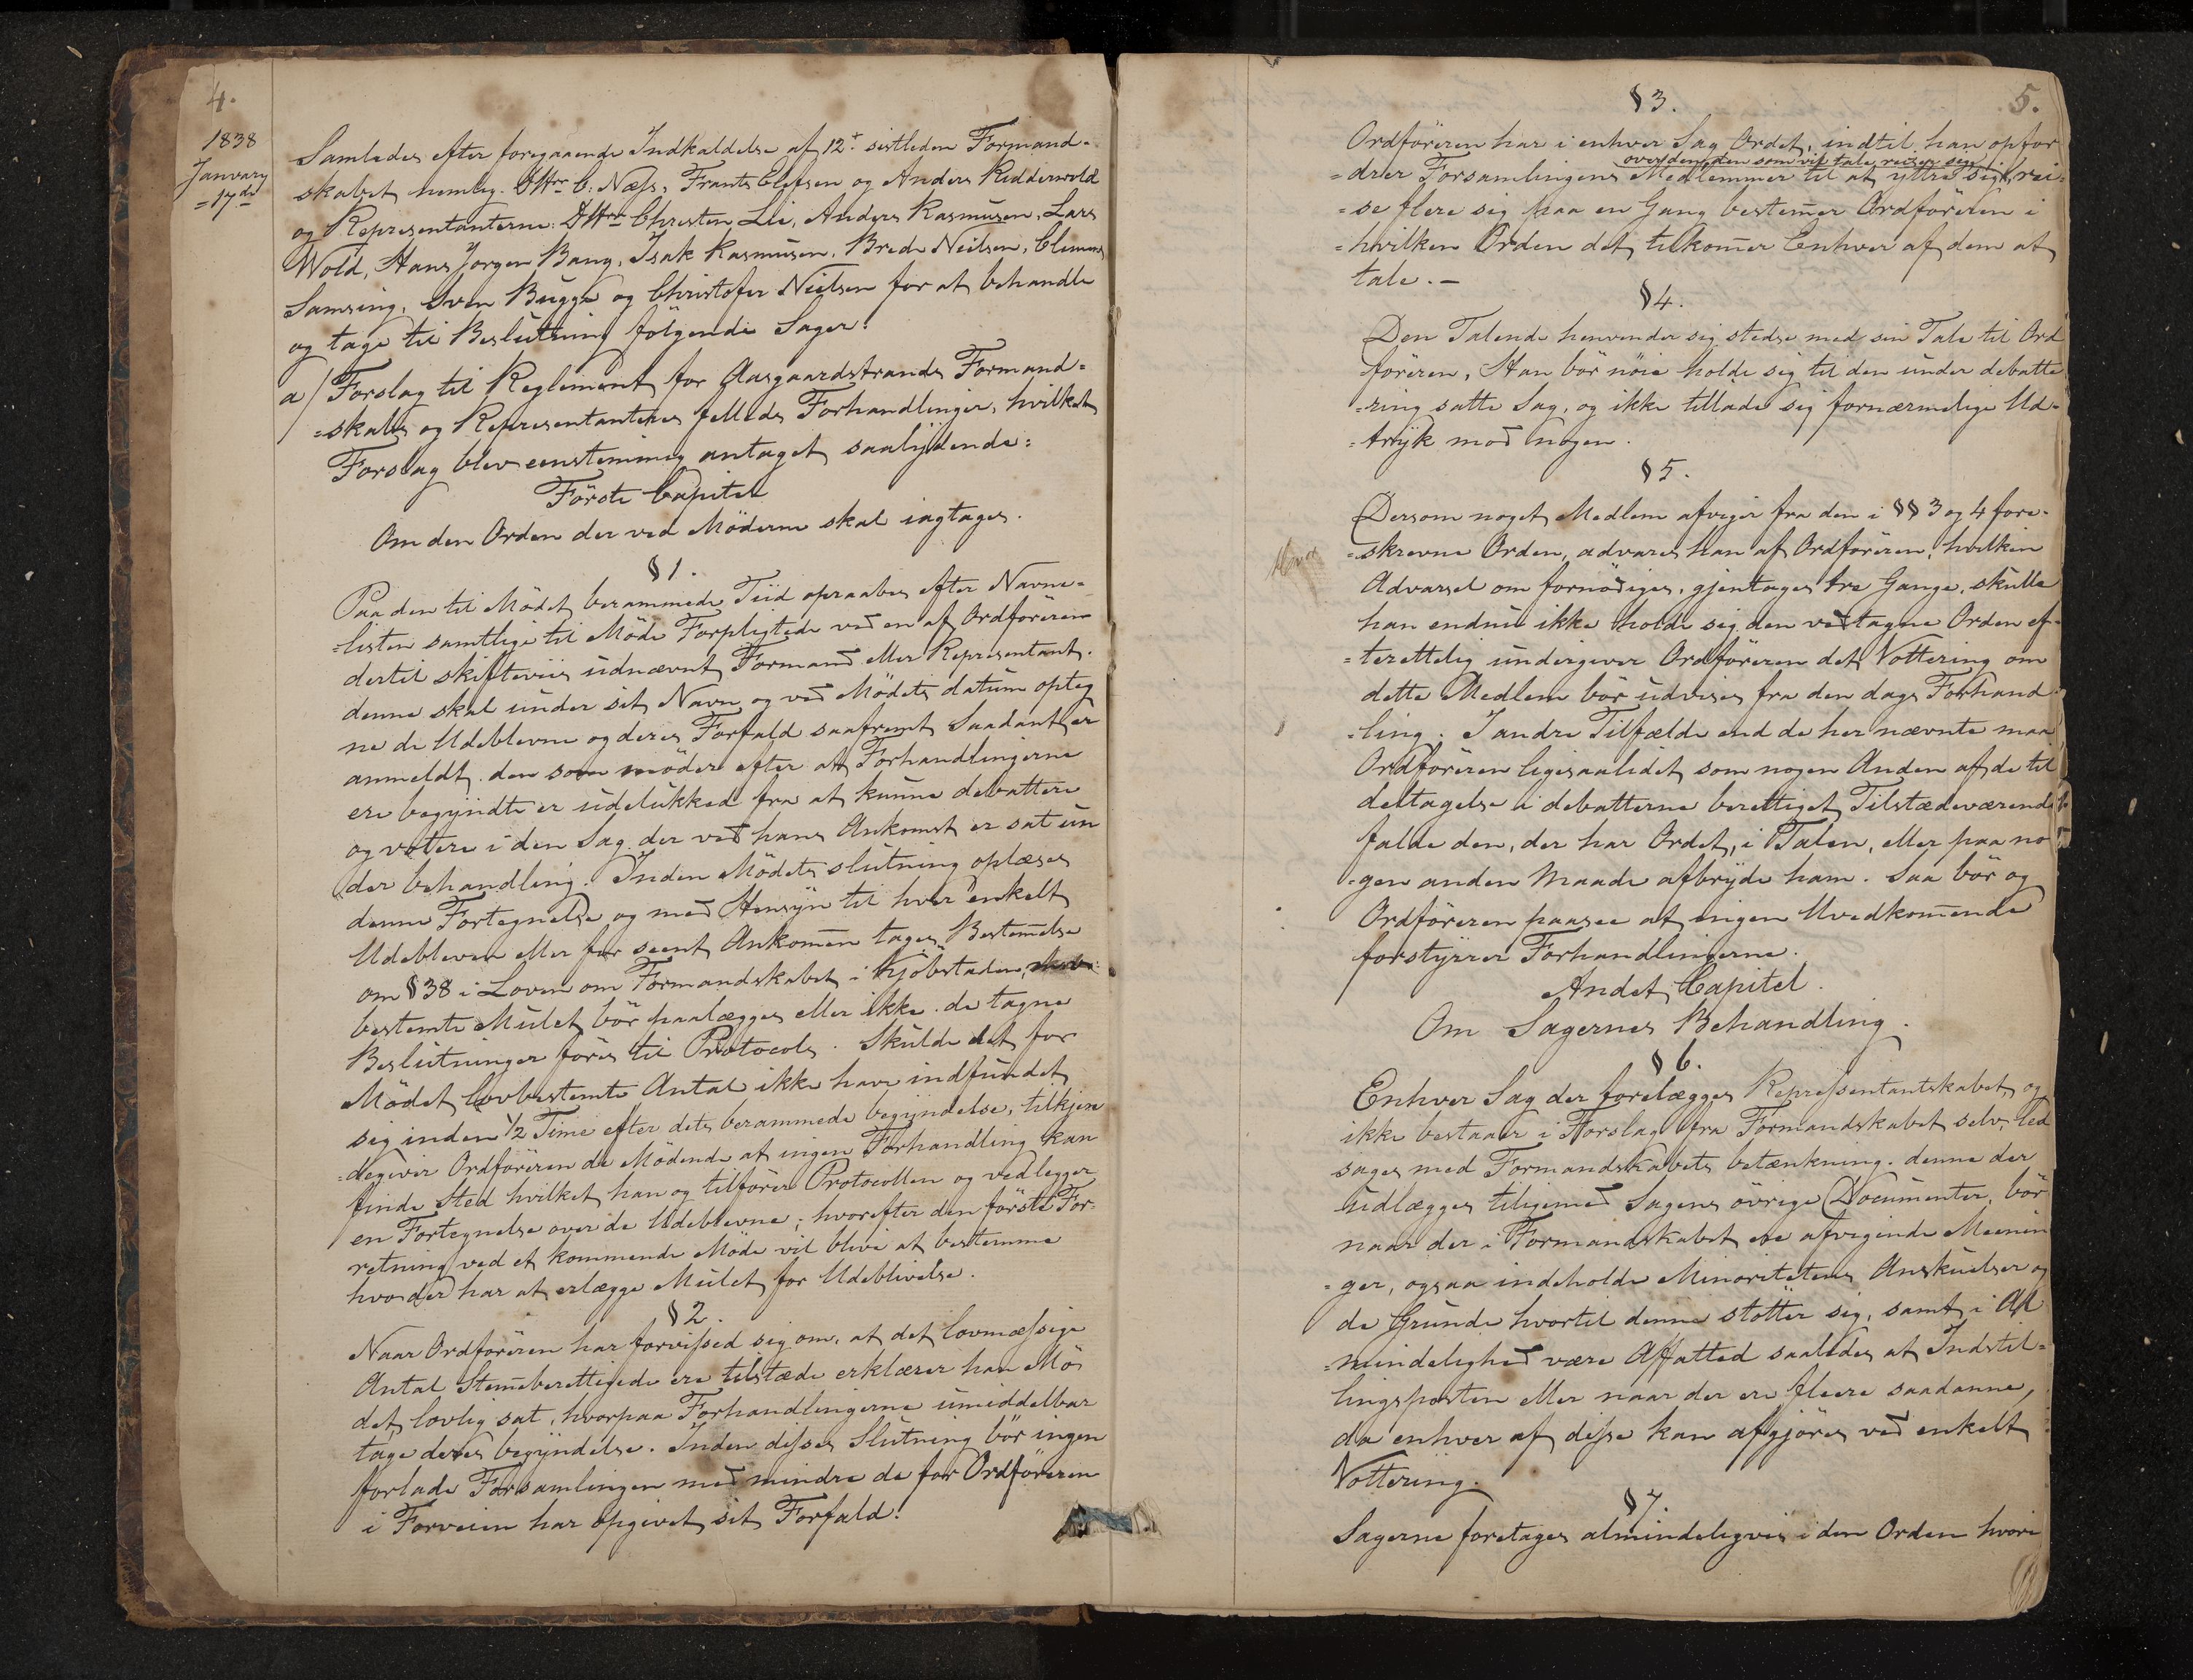 4.
1838
January
=17de
Samledes efter foregaaende Indkaldelse af 12t sistleden Formand-
skabet nemlig. DHrr C. Næss, Frants Elefsen og Anders Ridderwold
og Representanterne: DHrr Christen Lie, Anders Rasmusen, Lars
Wold, Hans Jorgen Bang, Isak Rasmusen, Brede Neilsen, Clemmet
Samsing, Sven Bugge og Christofer Nielsen for at behandle
og tage til Beslutning følgende Sager:
a/ Forslag til Reglement for Aasgaardstrands Formand=
=skabs og Representanteres felleds Forhandlinger, hvilket
Forslag blev eenstemmig antaget saalydende:
Förste Capitel
Om den Orden der ved Möderne skal iagtages.
§ 1.
Paa den til Mödet berammede Tiid opraabes efter Navne=
=listen samtlige til Möde Forpligtede ved en af Ordföreren
dertil skifteviis udnævnt Formand eller Representant.
denne skal under sit Navn og ved Mödets datum opteg
ne de Udeblevne og deres Forfald saafremt Saadant er
anmeldt. den som möder efter at Forhandlingerne
ere begyndte er udelukked fra at kunne debattere
og votere i den Sag der ved hans Ankomst er sat un
der behandling. Inden Mödets slutning oplæses
denne Fortegnelse og med Hensyn til hver enkelt
Udebleven eller for seent Ankom̄en tages Bestem̄else
om § 38 i Loven om Formandskabet i Kjöbstaden
bestemte Mulct bör paalægges eller ikke. de tagne
Beslutninger föres til Protocols. Skulde det for
Mödet lovbestemte Antal ikke have indfundet
sig inden ½ Time efter dets berammede begyndelse, tilkjen
=degiver Ordföreren de Mödende at ingen Forhandling kan
finde Sted hvilket han og tilförer Protocollen og vedlegger
en Fortegnelse over de Udeblevne; hvorefter den förste For=
retning ved et kommende Möde vil blive at bestemme
hvo der har at erlægge Mulct for Udeblivelse.
§ 2.
Naar Ordföreren har forvissed sig om, at det lovmæssige
Antal Stem̄eberettigede ere tilstæde erklærer han Mö
det lovlig sat, hvorpaa Forhandlingerne umiddelbar
tage deres begyndelse. Inden disses Slutning bör ingen
forlade Forsamlingen med mindre de for Ordföreren
i Forveien har opgivet sit Forfald.
5.
§ 3.
Ordföreren har i enhver Sag Ordet, indtil han opfor
over den, den som vil tale reiser sig
=drer Forsamlingens Medlemmer til at yttre sig, rei=
=se flere sig paa en Gang bestem̄er Ordföreren i
=hvilken Orden det tilkom̄er Enhver af dem at
tale.-
§ 4.
Den Talende henvender sig stedse med sin Tale til Ord
föreren, Han bör nöie holde sig til den under debatte
=ring satte Sag, og ikke tillade sig fornærmelige Ud=
=tryk mod nogen.
§ 5.
Dersom noget Medlem afviger fra den i §§ 3 og 4 fore-
=skrevne Orden, advares han af Ordföreren, hvilken
Advarsel om fornödiges, gjentages tre Gange, skulle
han endnu ikke holde sig den vedtagne Orden ef-
=terettelig undergiver Ordföreren det Vottering om
dette Medlem bör udvises fra den dags Forhand
=ling. I andre Tilfælde end de her nævnte maa
Ordföreren ligesaalidet som nogen Anden af de til
deltagelse i debatterne berettiget Tilstædeværende
falde den, der har Ordet, i Talen, eller paa no
=gen anden Maade afbryde ham. Saa bör og
Ordföreren paasee at ingen Uvedkom̄ende
forstyrrer Forhandlingerne.
Andet Capitel.
Om Sagernes Behandling.
§ 6.
Enhver Sag der forelægges Repressentantskabet og
ikke bestaaer i Forslag fra Formandskabet selv, led
sages med Formandskabets betænkning. denne der
udlægges tiligemed Sagens övrige Documenter, bör
naar der i Formandskabet ere afvigende Meenin
=ger, ogsaa indeholde Minoritetens Anskuelser og
de Grunde hvortil denne stötter sig, samt i Al
=mindelighed være Affatted saaledes at Indstil=
lingsposten eller naar der ere fleere saadanne,
da enhver af disse kan afgjöres ved enkelt
Vottering.
§ 7.
Sagerne foretages almindeligvis i den Orden hvori